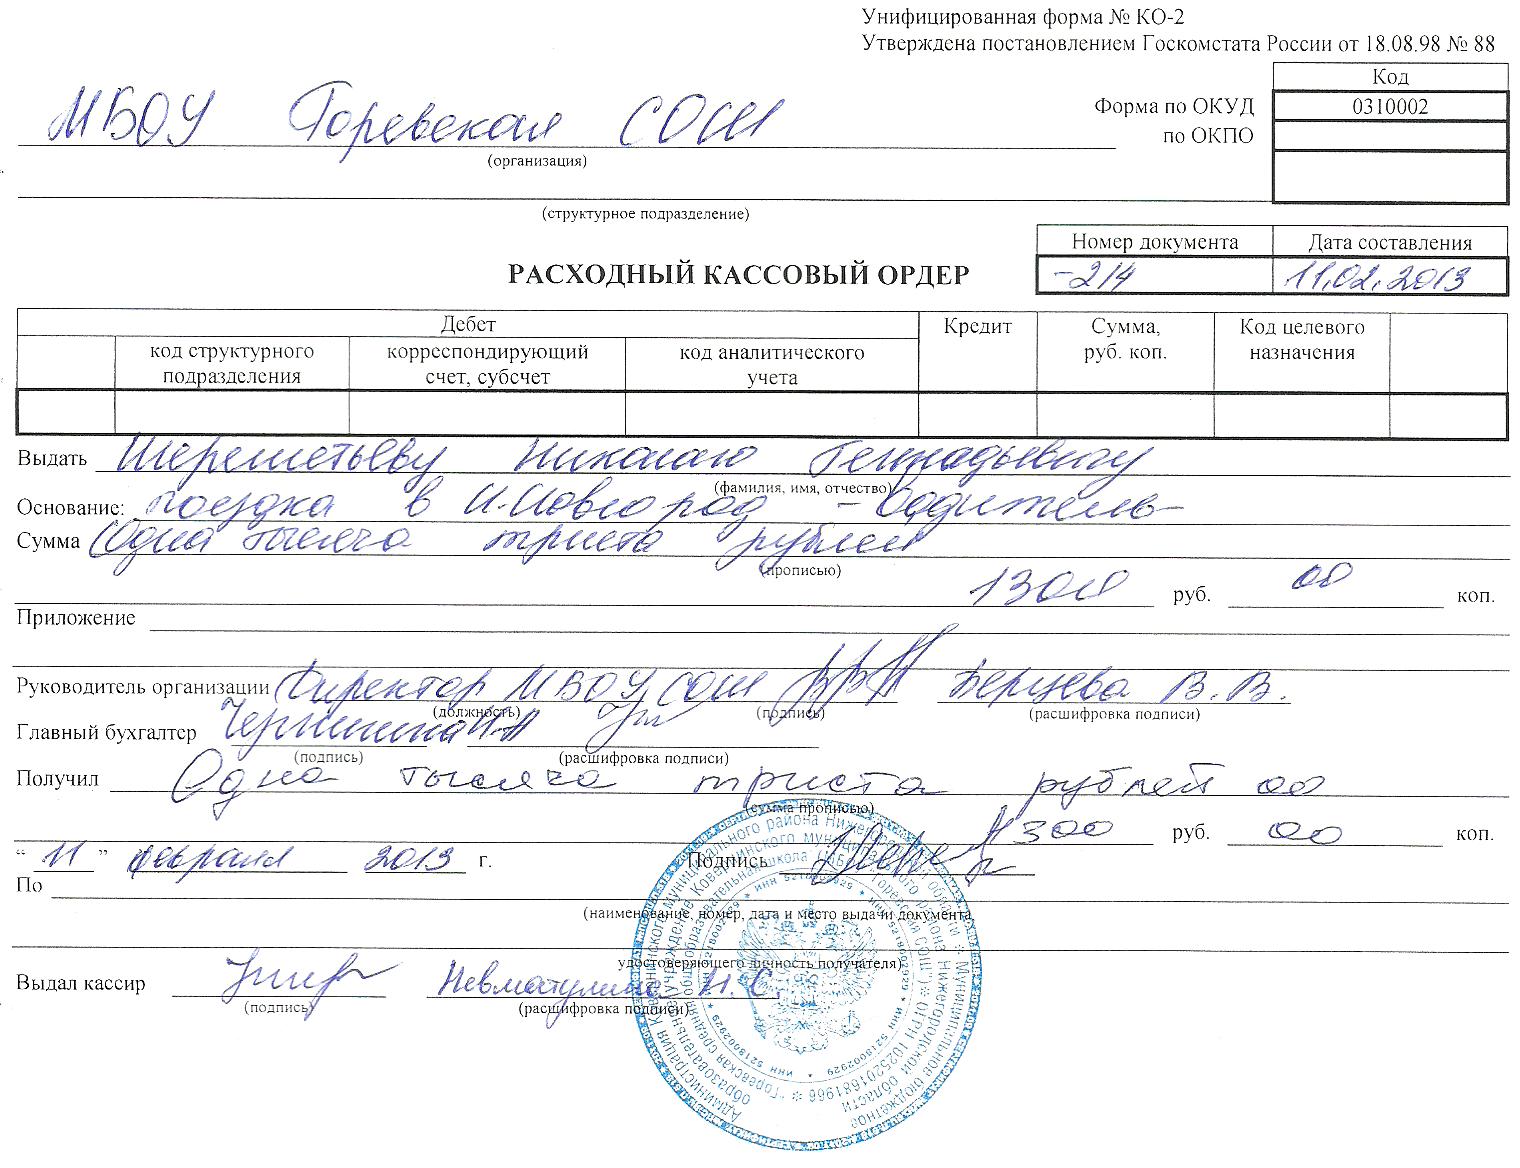 Унифицированная форма № КО-2
Утверждена постановлением Госкомстата России от 18.08.98 № 88
Код
Форма по ОКУД 0310002
по ОКПО
МБОУ Горевская СОШ
(организация)
(структурное подразделение)
Номер документа Дата составления
РАСХОДНЫЙ КАССОВЫЙ ОРДЕР -214 11.02.2013
Дебет Кредит Сумма, руб. коп. Код целевого назначения
код структурного подразделения корреспондирующий счет, субсчет код аналитического учета
Выдать Шереметьеву Николаю Геннадьевичу
(фамилия, имя, отчество)
Основание: поездка в Н.Новгород - водитель-
Сумма Одна тысяча триста рублей
(прописью)
1300 руб. 00 коп.
Приложение
Руководитель организации Директор МБОУ СОШ Берцева В.В.
(должность) (подпись) (расшифровка подписи)
Главный бухгалтер
(подпись) (расшифровка подписи)
Получил Одна тысяча триста рублей 00
(сумма прописью)
1300 руб. 00 коп.
“ 11 ” февраля 2013 г. Подпись
По
(наименование, номер, дата и место выдачи документа,
удостоверяющего личность получателя)
Выдал кассир Невматулина Н.С.
(подпись) (расшифровка подписи)
Администрация Ковернинского муниципального района Нижегородской области * Муниципальное бюджетное
образовательное учреждение Ковернинского муниципального района Нижегородской области
"Горевская средняя общеобразовательная школа" (МБОУ Горевская СОШ) * ОГРН 1025201681966 *
* ИНН 5218002929 * ИНН 5218002929 * ИНН 5218002929 * ИНН 5218002929